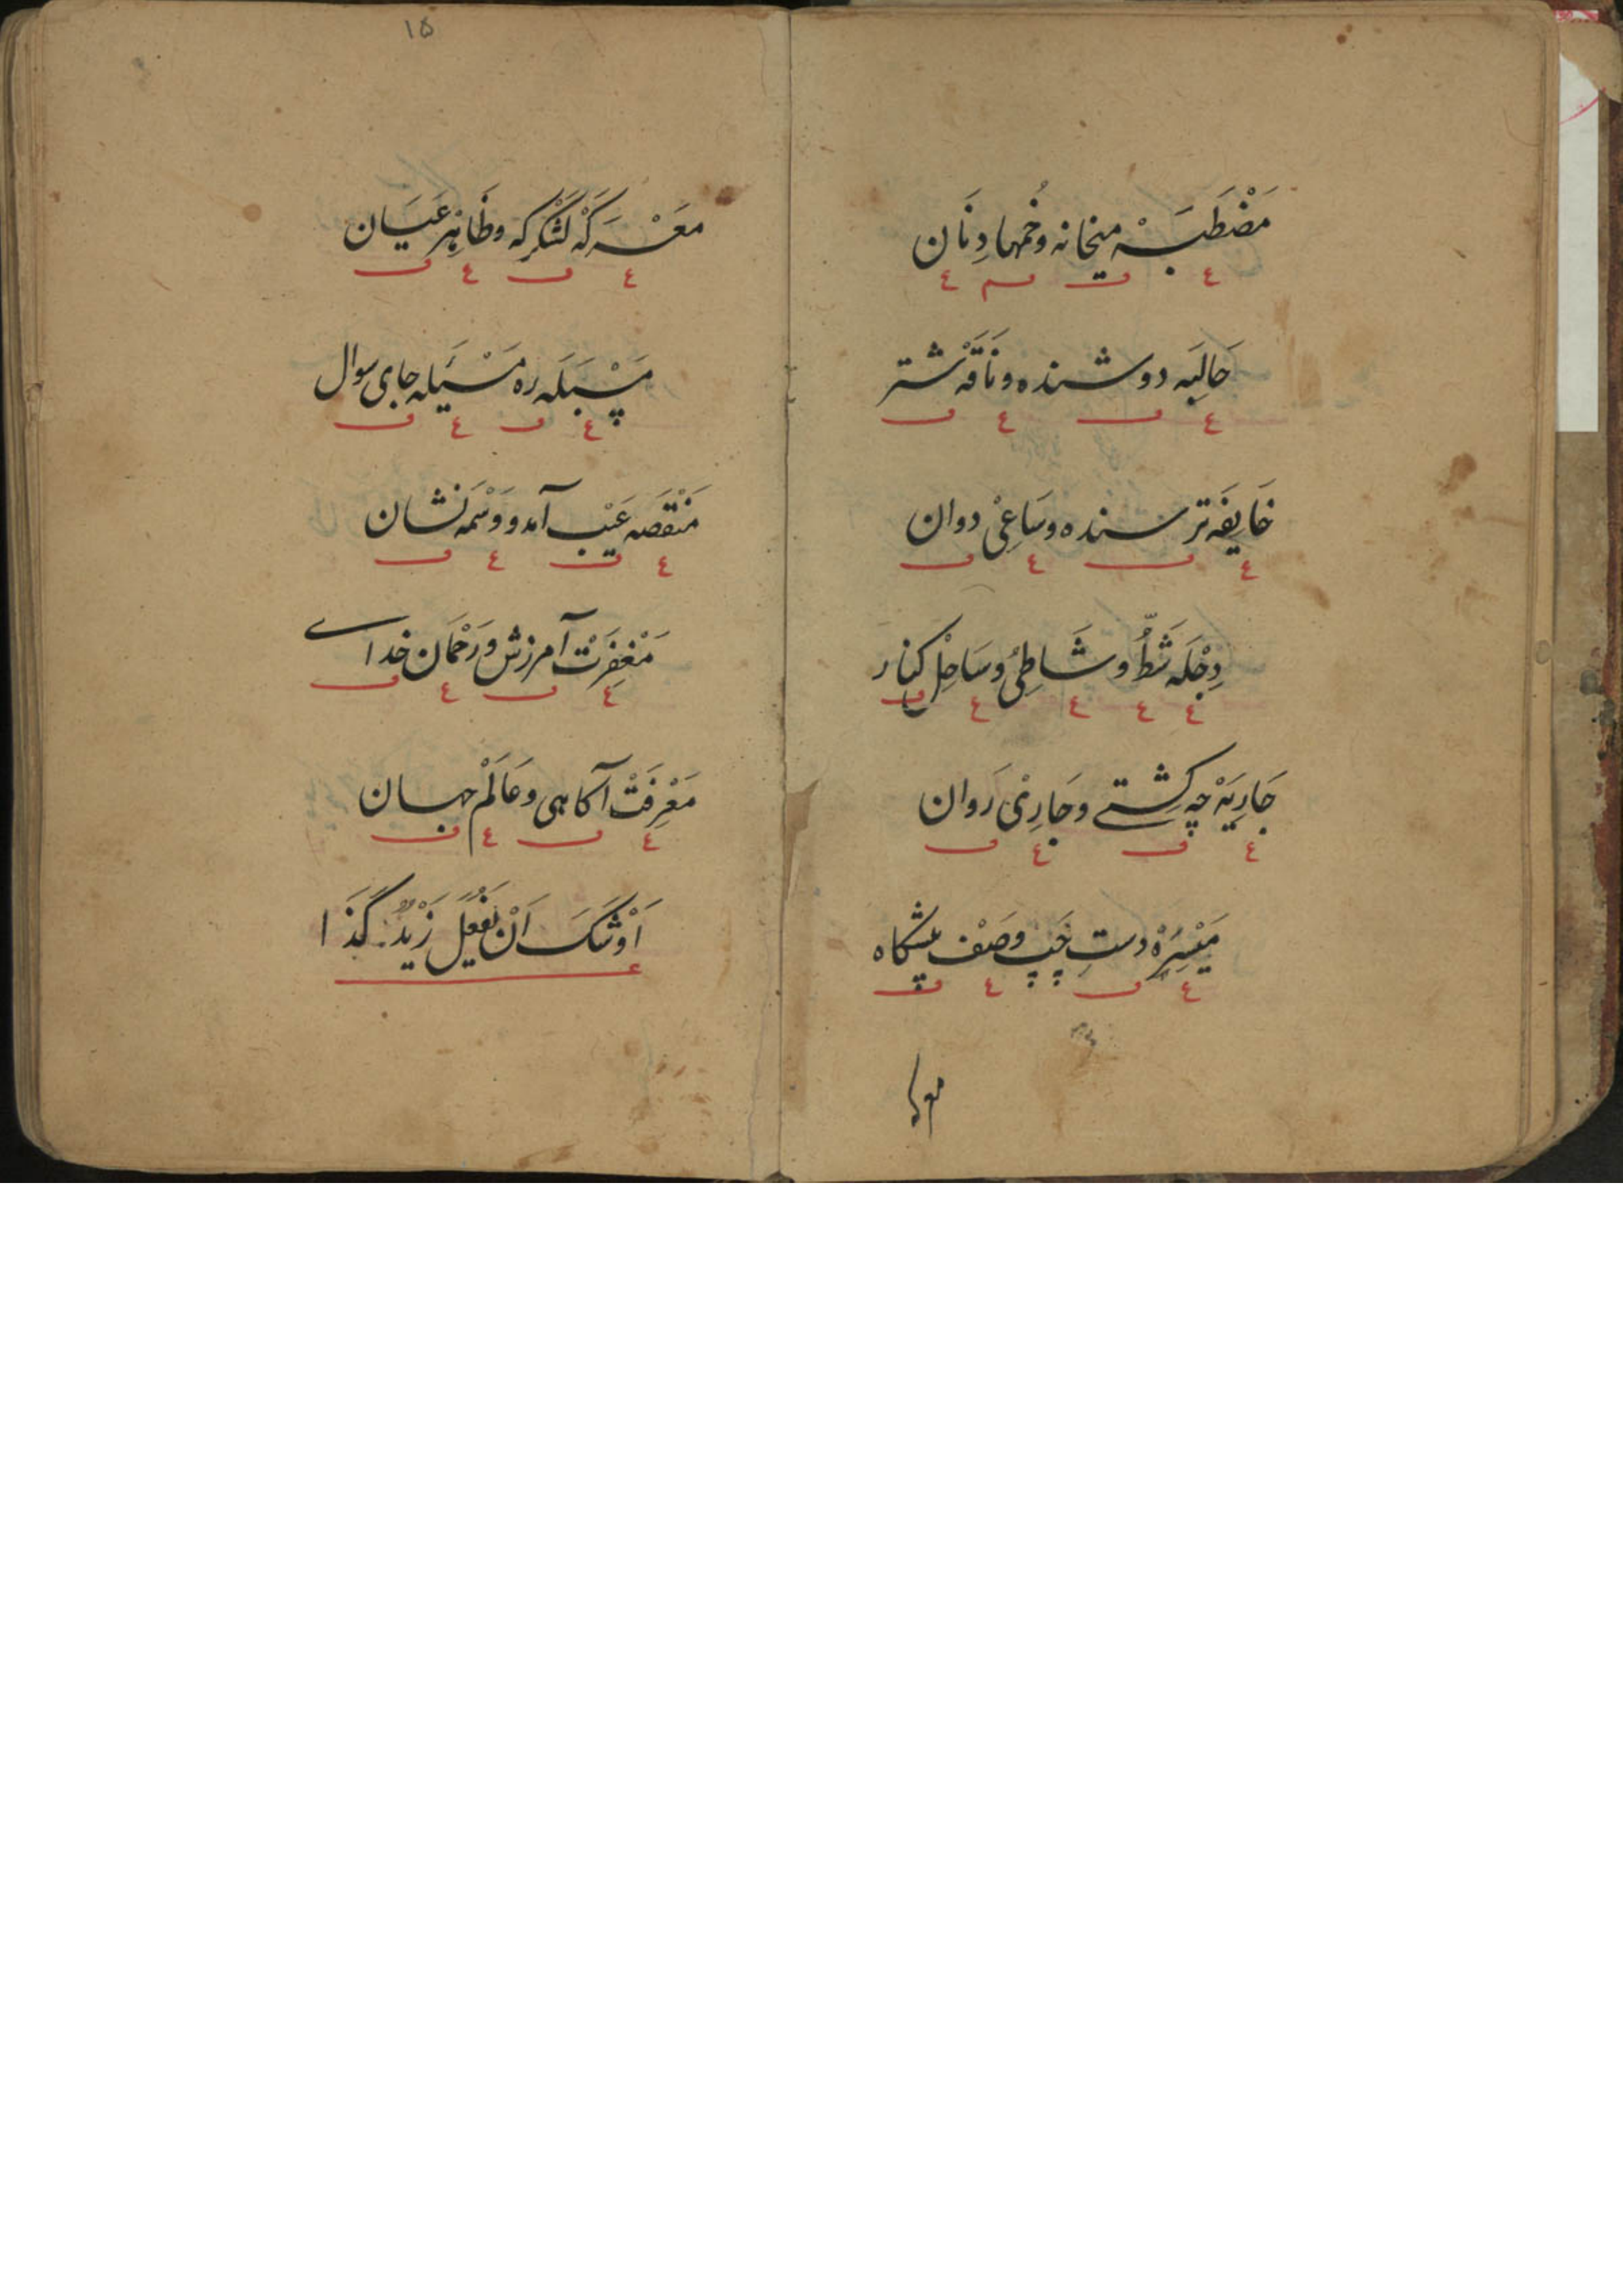 مَضْطَبَهْ میخانه وخُمها دِنَان
حَالِبَه دوشنده ونَاقَه شتر
خَایِفَه ترسنده وسَاعِیْ دوان
دِجْلَه شَطُّ وشَاطِیُ وسَاحِلْ کنار
جَارِیَهْ چه کِشتے وجَارِیْ رَوان
مَیْسِرَهْ دستِ چَپ وصَفْ پیشگاه
۱۵
معَرَکَهْ لَشْکَرکه وظَاهِر عَیَان
مَسْبَلَه ره مَسْئَیله جای سوال
مَنْقَصَه عَیْب آمد ووَسْمَه نشان
مَغْفِرَتْ آمرزش ورَحْمَان خداے
مَعْرِفَتْ آکاهی وعَالَمْ جهان
اَوْشَکَ اَنْ یَفْعَلَ زَیْدٌ کَذَا